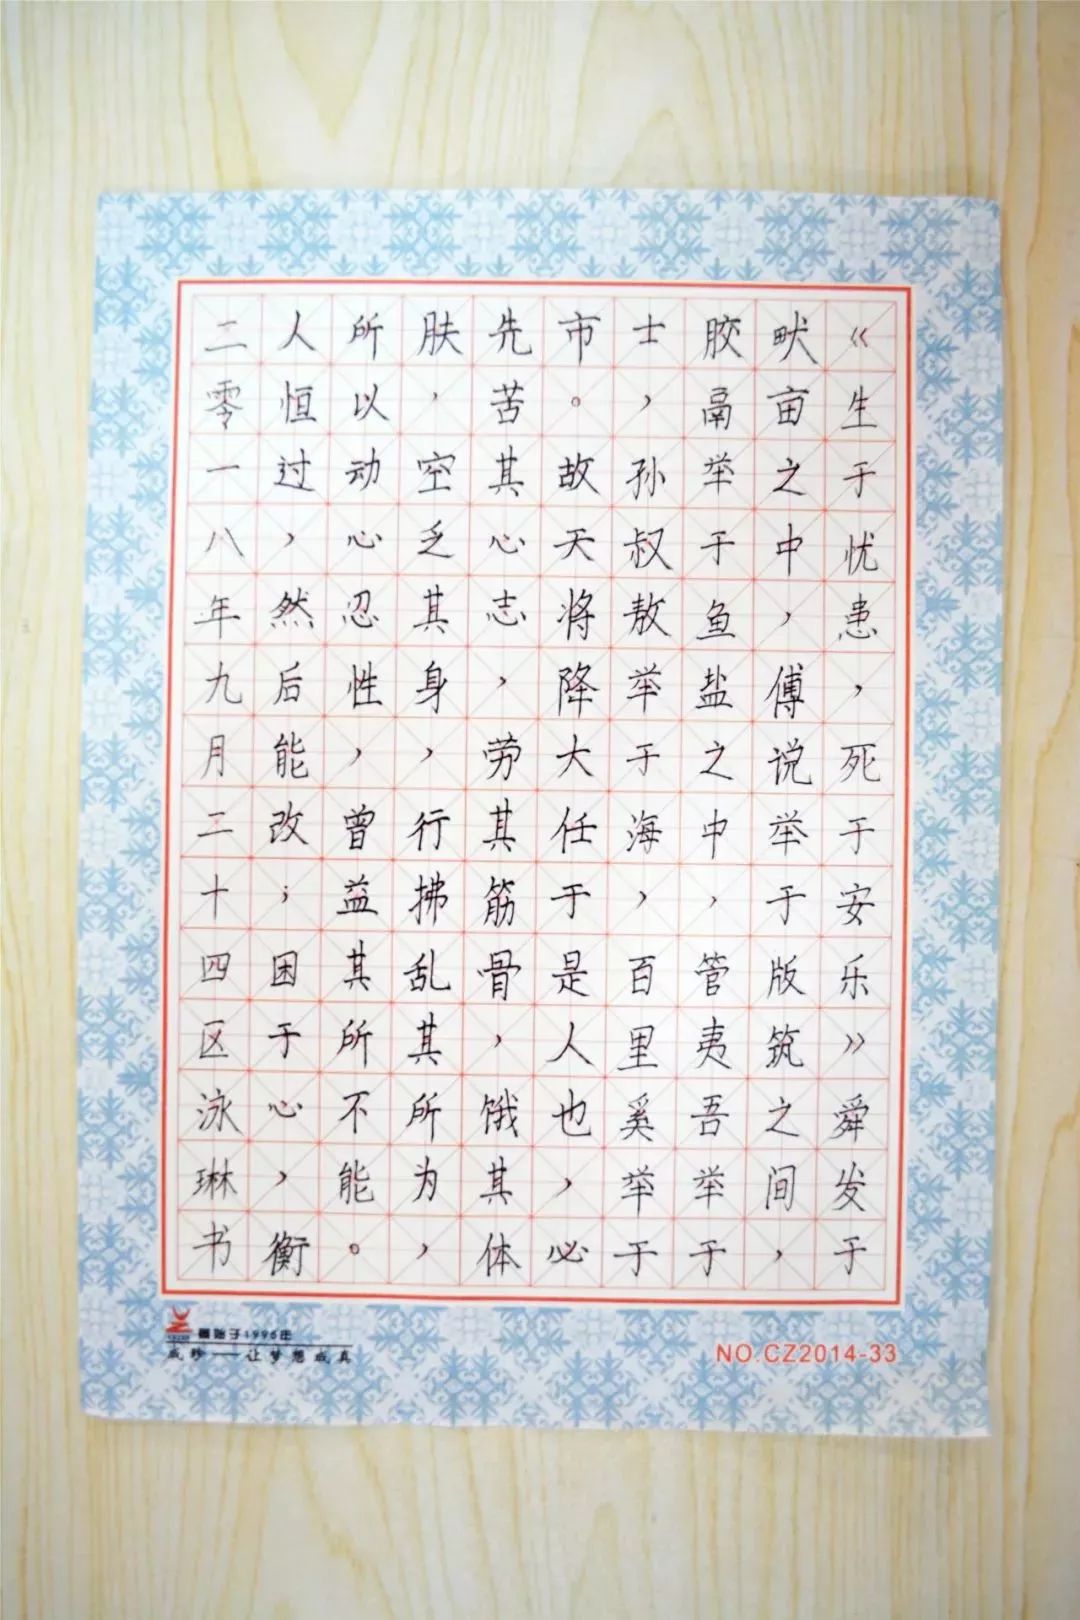 《生于忧患，死于安乐》舜发于
畎亩之中，傅说举于版筑之间，
胶鬲举于鱼盐之中，管夷吾举于
士，孙叔敖举于海，百里奚举于
市。故天将降大任于是人也，必
先苦其心志，劳其筋骨，饿其体
肤，空乏其身，行拂乱其所为，
所以动心忍性，曾益其所不能。
人恒过，然后能改；困于心，衡
二零一八年九月二十四区泳琳书
始于1996年
成眇——让梦想成真
NO.CZ2014-33